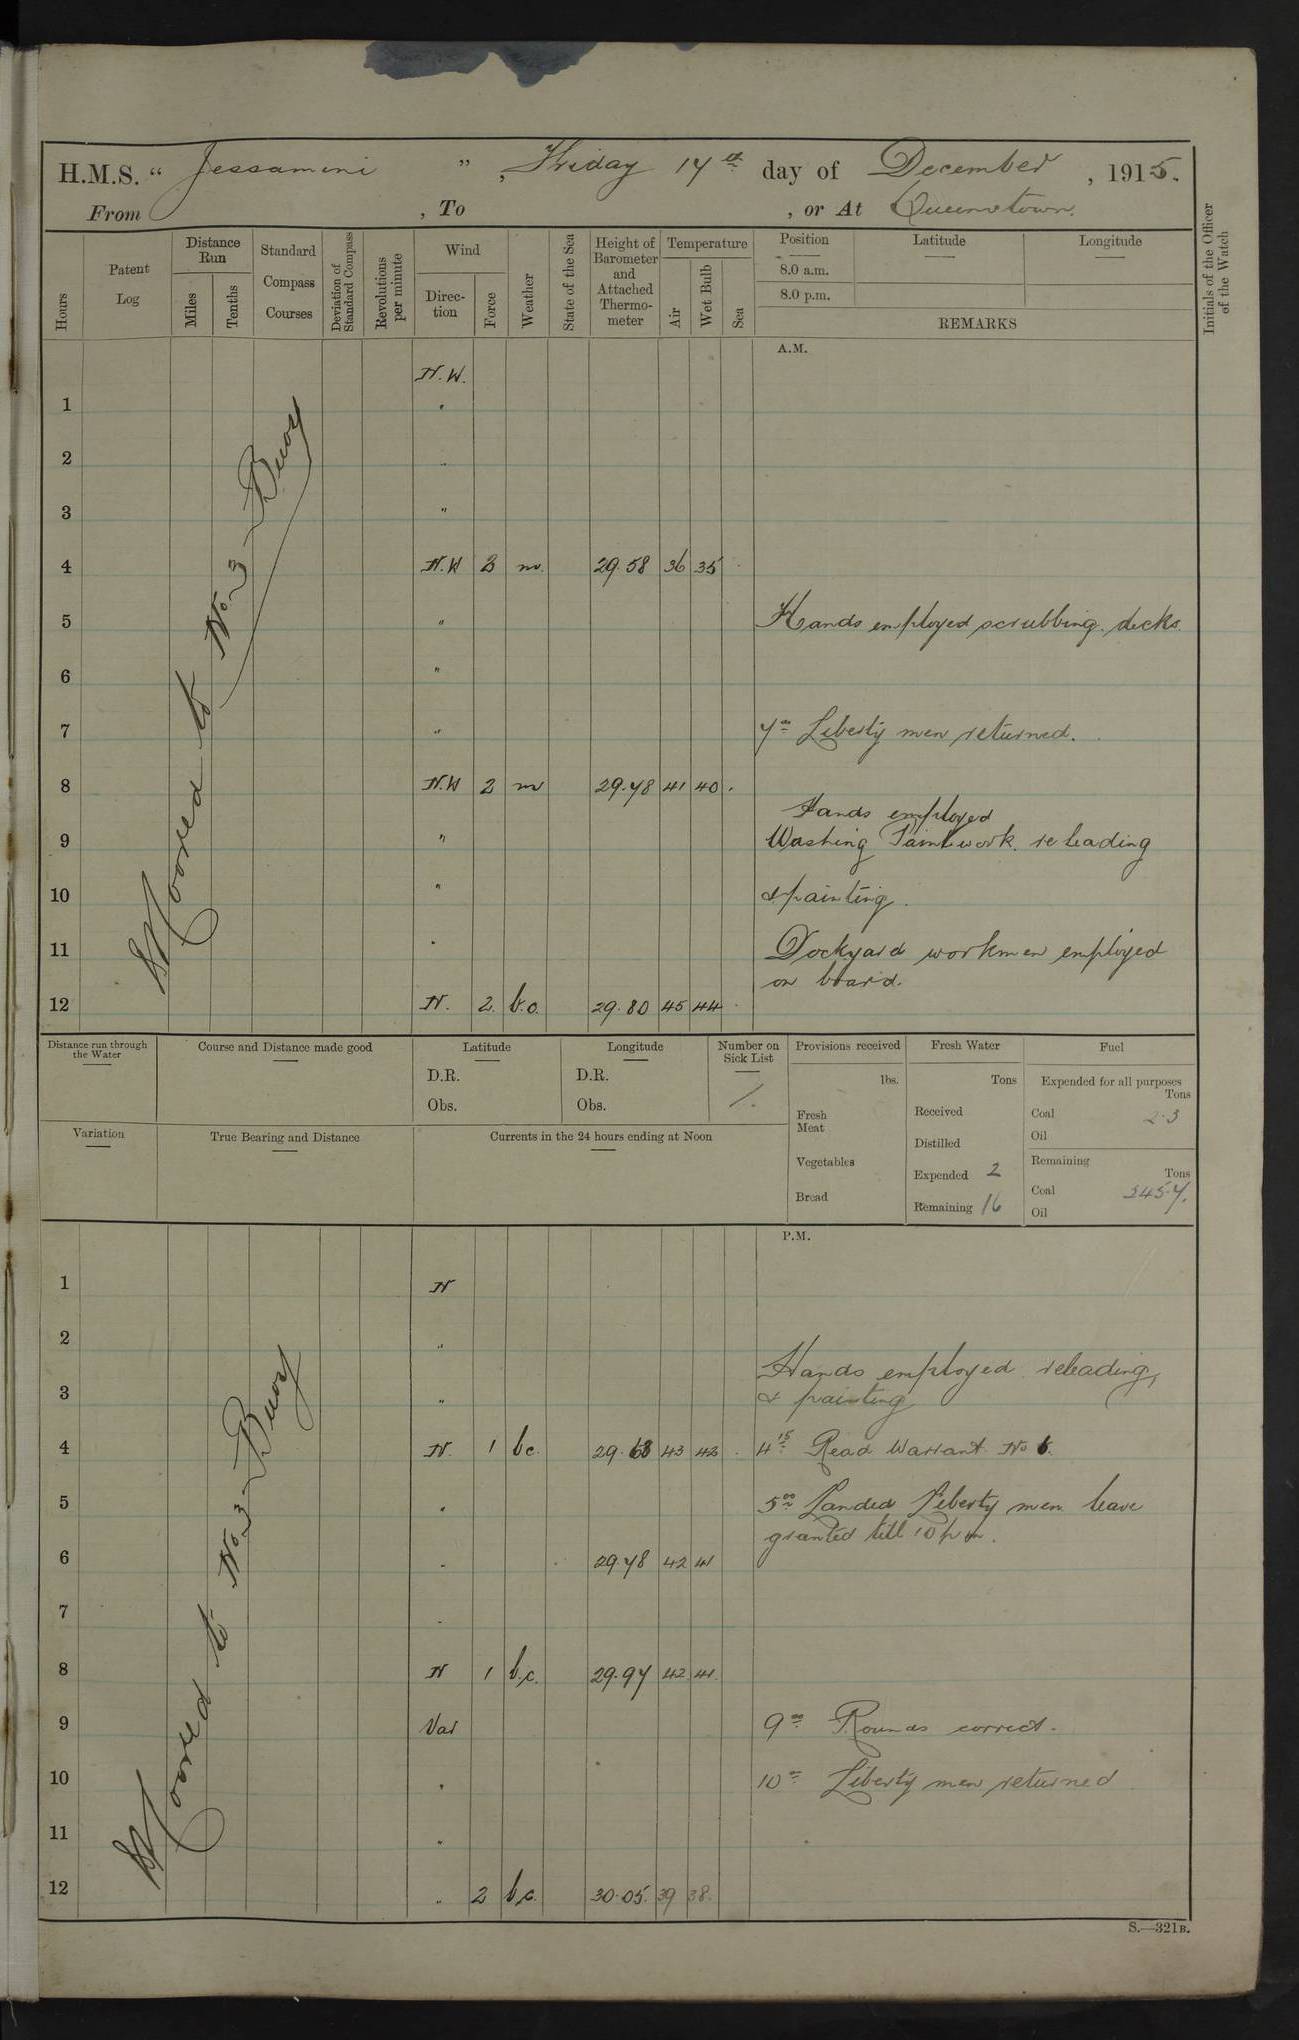 H.M.S. “ Jessamini ”, Friday 17th day of December, 1915.
From , To , or At Queenstown.
Hours
Patent Log
Distance Run
Miles
Tenths
Standard Compass Courses
Deviation of Standard Compass
Revolutions per minute
Wind
Direction
Force
Weather
State of the Sea
Height of Barometer and Attached Thermometer
Temperature
Air
Wet Bulb
Sea
Position
Latitude
Longitude
8.0 a.m.
8.0 p.m.
REMARKS
Initials of the Officer of the Watch
A.M.
N.W.
1 "
2 "
3 "
4 N.W 3 m. 29.58 36 35
5 " Hands employed scrubbing decks.
6 "
7 " 7 00 Liberty men returned.
8 N.W 2 m 29.78 41 40
Hands employed
9 " Washing Paintwork. releading
10 " & painting.
11 " Dockyard workmen employed
on board.
12 N. 2. b.c. 29.80 45 44
Moored to No. 3 Buoy
Distance run through the Water
Course and Distance made good
Latitude
D.R.
Obs.
Longitude
D.R.
Obs.
Number on Sick List
1.
Provisions received
lbs.
Fresh Meat
Vegetables
Bread
Fresh Water
Tons
Received
Distilled
Expended 2
Remaining 16
Fuel
Expended for all purposes
Tons
Coal 2.3
Oil
Remaining
Tons
Coal 245.7.
Oil
Variation
True Bearing and Distance
Currents in the 24 hours ending at Noon
P.M.
1 N
2 "
Hands employed releading,
3 " & painting
4 N. 1 bc. 29. 43 42 4 15 Read Warrant No 6.
5 " 5 00 Landed Liberty men leave
granted till 10 p m.
6 " 29.78 42 41
7 "
8 N 1 b.c. 29.97 42 41
9 Var 9 00 Rounds correct.
10 " 10 00 Liberty men returned
11 "
12 " 2 b.c. 30.05. 39 38.
Moored to No. 3 Buoy
S.—321B.